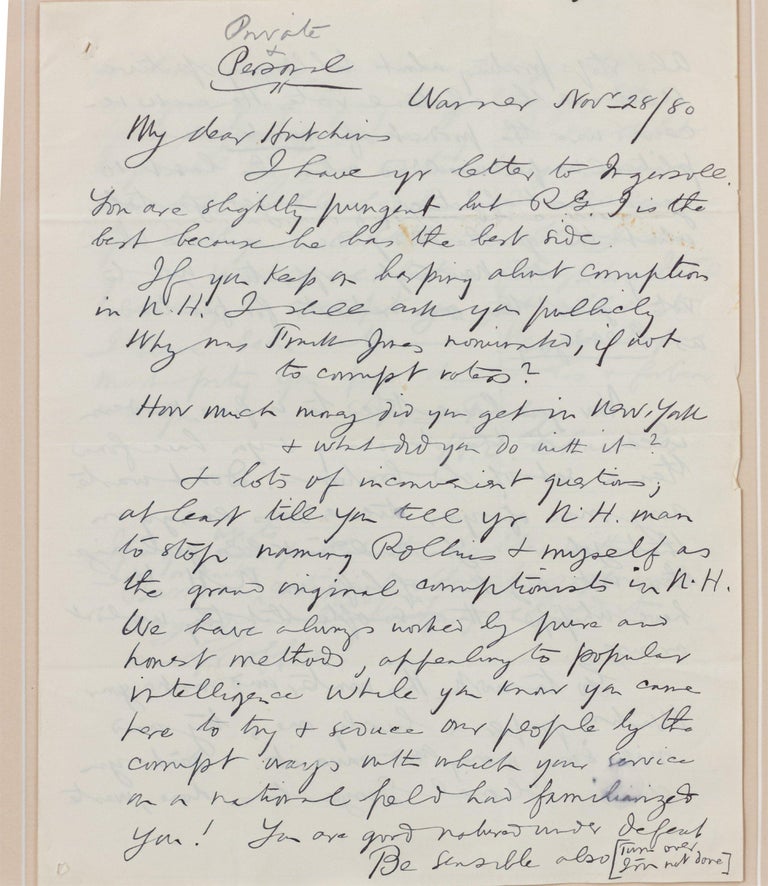 Private
&
Personal
Warner Novr 28/80
My dear Hutchins
I have yr letter to Ingersoll.
You are slightly pungent but R.G. I is the
best because he has the best side.
If you keep on harping about corruption
in N.H. I shall ask you publicly
Why was Frank Jones nominated, if not
to corrupt voters?
How much money did you get in New York
& what did you do with it?
& lots of inconvenient questions,
at least till you tell yr N.H. man
to stop naming Rollins & myself as
the grand original corruptionists in N.H.
We have always worked by pure and
honest methods, appealing to popular
intelligence while you know you came
here to try & seduce our people by the
corrupt ways with which your service
on a national field had familiarized
you! You are good natured under defeat
Be sensible also [Turn over
I'm not done]